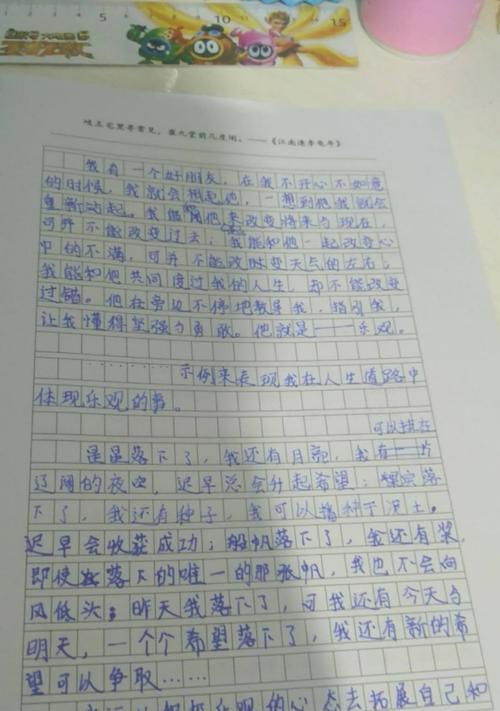 5 10 15
岐王宅里寻常见，崔九堂前几度闻。——《江南逢李龟年》
我有一个好朋友，在我不开心不如意
的时候，我就会想起他，一想到他我就会
重新动起。我能用他来改变将来与现在，
可并不能改变过去；我能和他一起改变心
中的不满，可并不能改时变天气的左右；
我能和他共同度过我的人生，却不能改变
过错。他在旁边不停地教导我，指引我，
让我懂得坚强与勇敢。他就是——乐观。
………示例来表现我在人生道路中
体现乐观的事。
可以挂在
星星落下了，我还有月亮，我有一片
辽阔的夜空，迟早总会升起希望；果实落
下了，我还有种子，我可以播种下泥土。
迟早会收获成功；船帆落下了，我还有桨，
即使落下的唯一的那张帆，我也不会向
风低头；昨天我落下了，可我还有今天与
明天，一个个希望落下了，我还有新的希
望可以争取……
乐观的心态去拓展自己和